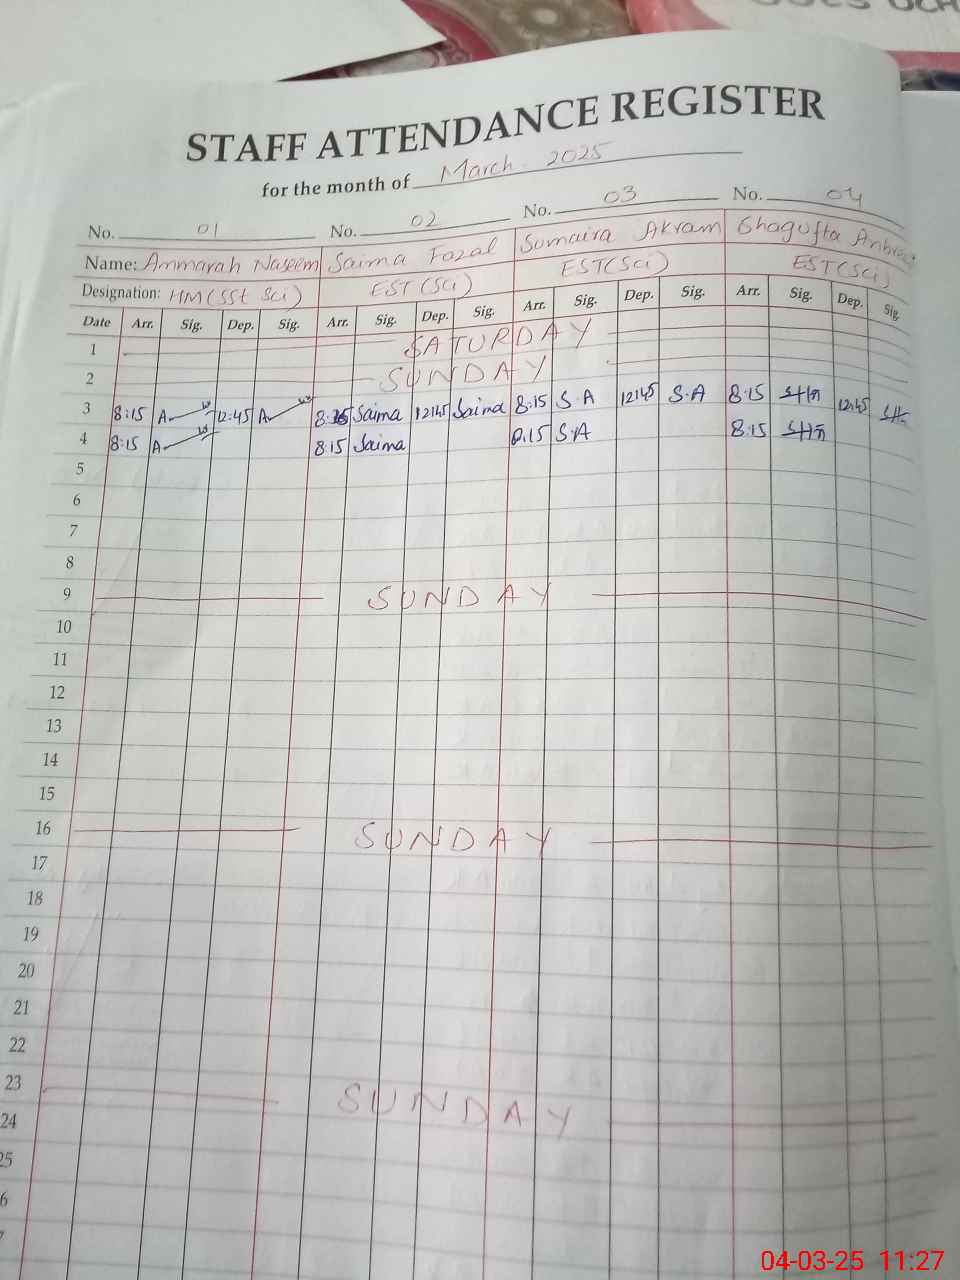 STAFF ATTENDANCE REGISTER
for the month of March - 2025
No. 01 No. 02 No. 03 No. 04
Name: Ammarah Naseem Saima Fazal Sumaira Akram Shagufta
Designation: HM (SSt Sci) EST (Sci) EST (Sci) EST (Sci)
Date Arr. Sig. Dep. Sig. Arr. Sig. Dep. Sig. Arr. Sig. Dep. Sig. Arr. Sig. Dep. Sig.
1 SATURDAY
2 SUNDAY
3 8:15 A 12:45 A Saima 12:45 Saima 8:15 S.A 12:45 S.A 8:15 12:45
4 8:15 A 8:15 Saima 8:15 S.A 8:15
5
6
7
8
9 SUNDAY
10
11
12
13
14
15
16 SUNDAY
17
18
19
20
21
22
23 SUNDAY
24
25
6
04-03-25 11:27